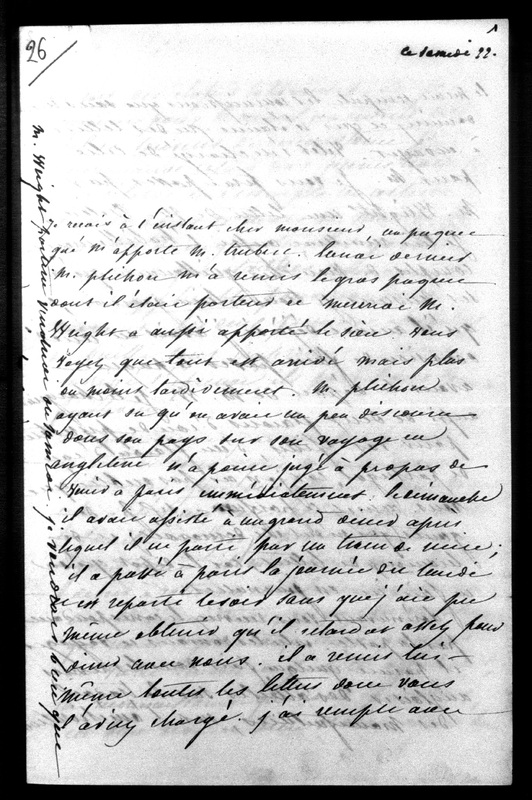 26
1
ce samedi 22.
je reçois à l'instant cher monsieur, un paquet
que m'apporte M. lundi dernier
M. plichon m'a remis le gros paquet
dont il était porteur et mercredi M.
Wright a aussi apporté le sien vous
voyez que tout est arrivé mais plus
ou moins tardivement. M. plichon
ayant su qu'on avait un peu discouru
dans son pays sur son voyage en
angleterre n'a point jugé à propos de
venir à paris immédiatement. le dimanche
il avait assisté à un grand diner après
lequel il est parti par un train de nuit;
il a passé à paris la journée du lundi
et est reparti le soir sans que j'aie pu
même obtenir qu'il retardat assez pour
diner avec nous. il a remis lui-
même toutes les lettres dont vous
l'aviez chargé. j'ai rempli avec
M. Wright partira vendredi ou samedi. je voudrais bien que